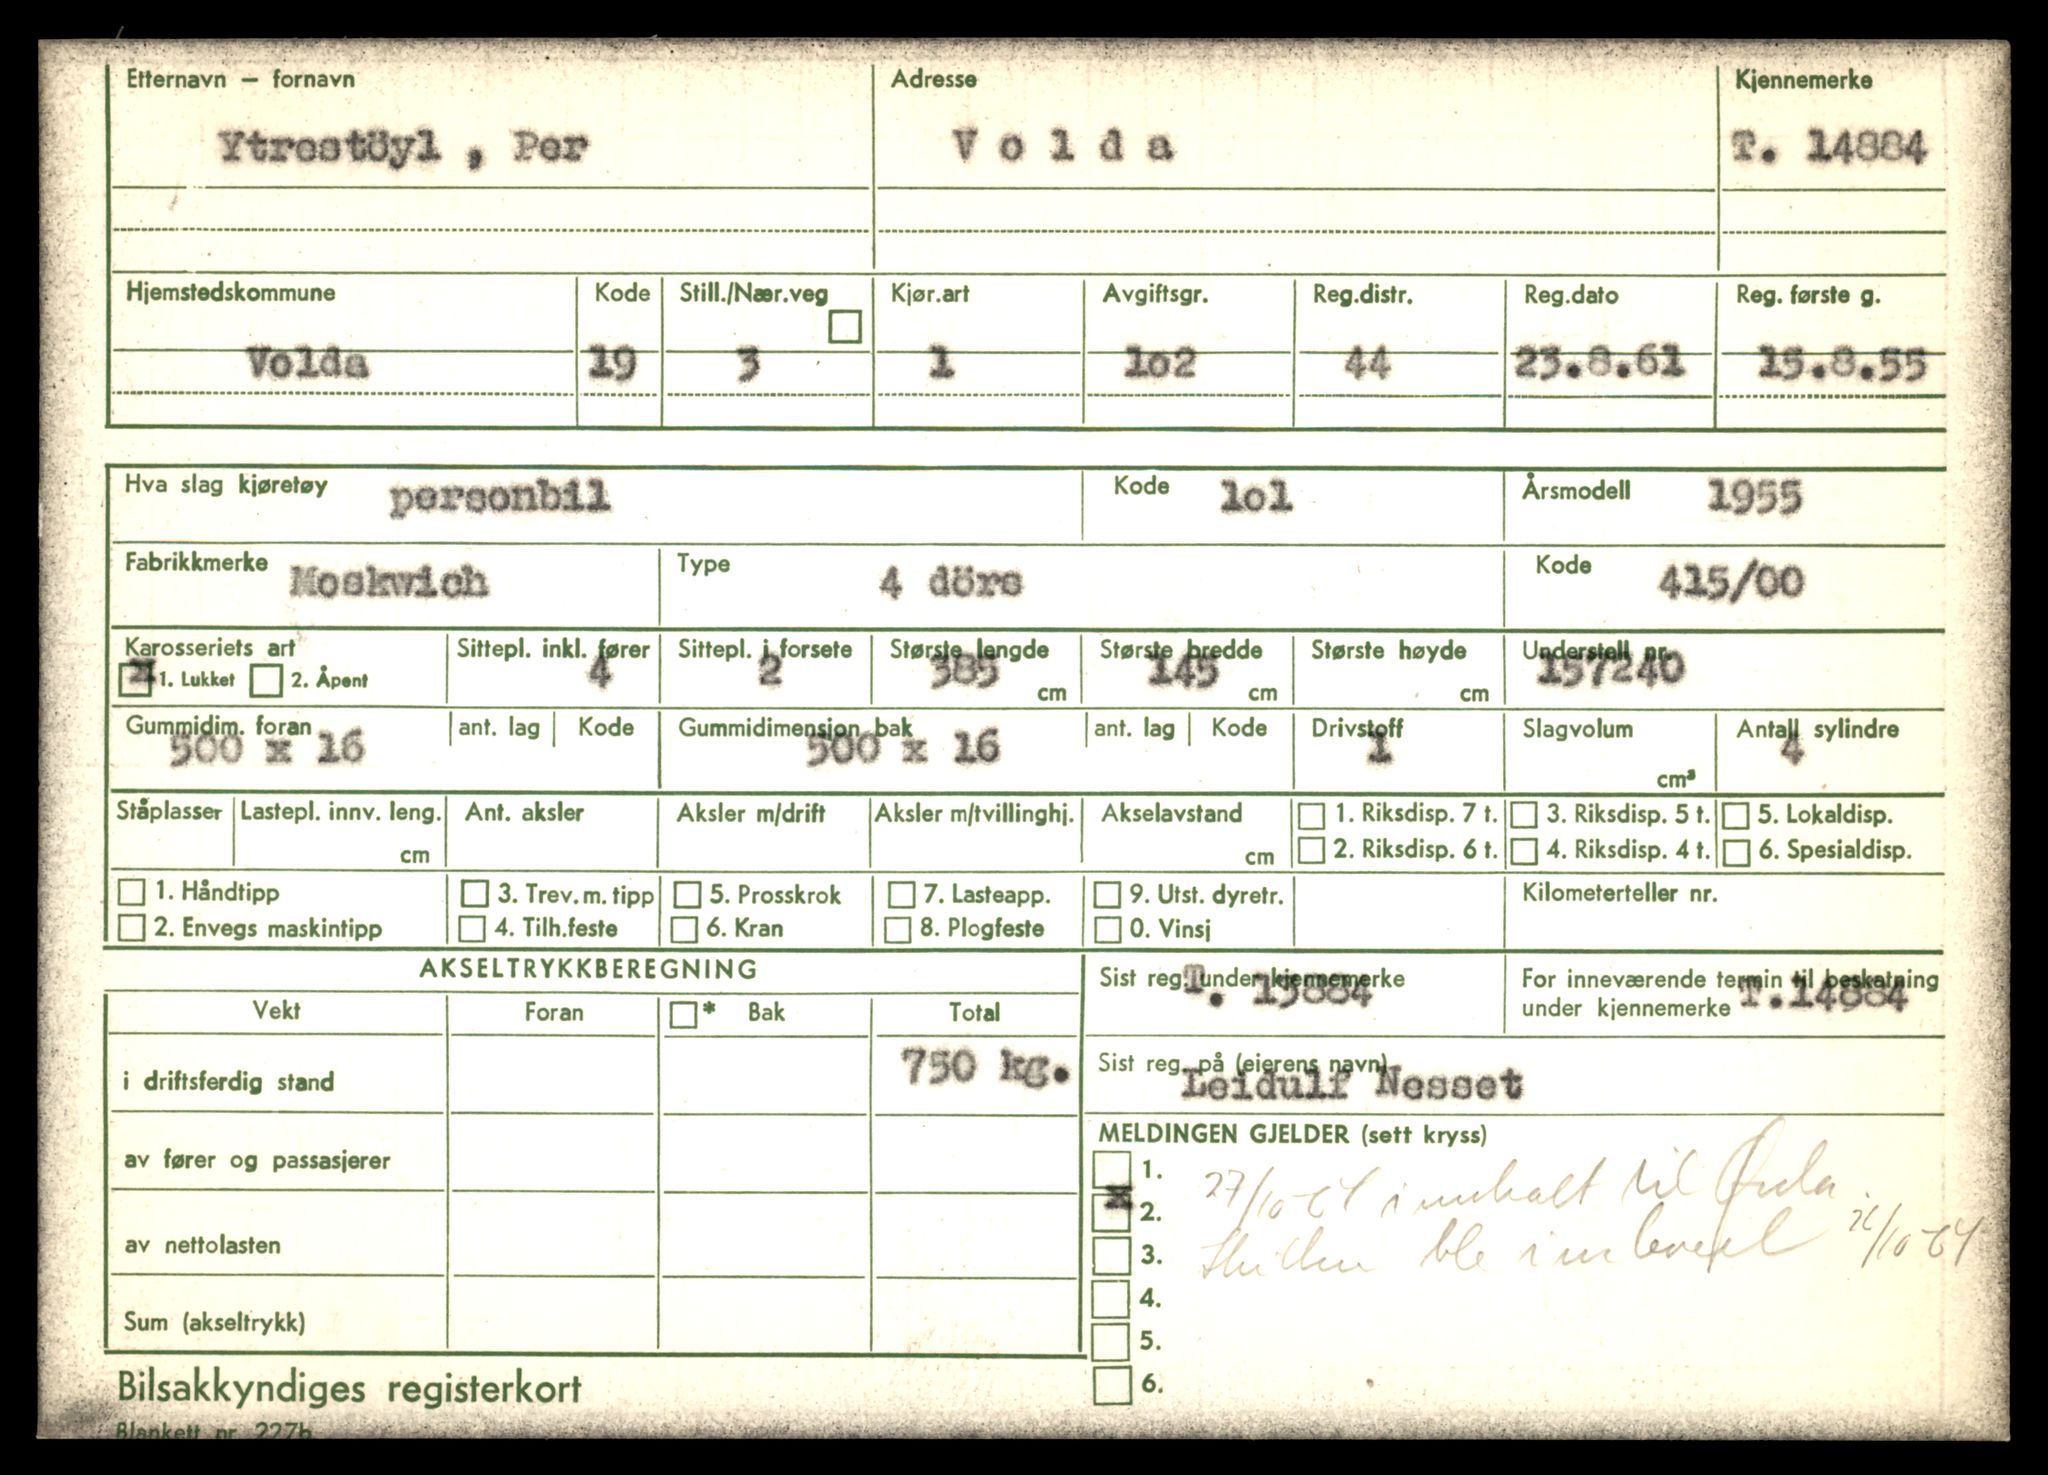 Etternavn — fornavn Adresse Kjennemerke
Ytrestöyl , Per V o l d a T. 14884
Hjemstedskommune Kode Still./Nær.veg Kjør.art Avgiftsgr. Reg.distr. Reg.dato Reg. første g.
Volda 19 3 1 1o2 44 23.8.61 15.8.55
Hva slag kjøretøy personbil Kode 1o1 Årsmodell 1955
Fabrikkmerke Moskvich Type 4 dörs Kode 415/00
Karosseriets art Sittepl. inkl. fører Sittepl. i forsete Største lengde Største bredde Største høyde Understell nr.
x 1. Lukket 2. Åpent 4 2 385 cm 145 cm cm 157240
Gummidim. foran ant. lag Kode Gummidimensjon bak ant. lag Kode Drivstoff Slagvolum Antall sylindre
500 x 16 500 x 16 1 cm³ 4
Ståplasser Lastepl. innv. leng. Ant. aksler Aksler m/drift Aksler m/tvillinghj. Akselavstand 1. Riksdisp. 7 t. 3. Riksdisp. 5 t. 5. Lokaldisp.
cm cm 2. Riksdisp. 6 t. 4. Riksdisp. 4 t. 6. Spesialdisp.
1. Håndtipp 3. Trev. m. tipp 5. Prosskrok 7. Lasteapp. 9. Utst. dyretr. Kilometerteller nr.
2. Envegs maskintipp 4. Tilh.feste 6. Kran 8. Plogfeste 0. Vinsj
AKSELTRYKKBEREGNING
Sist reg. under kjennemerke T. 15884
For inneværende termin til beskatning
under kjennemerke T.14884
Vekt Foran * Bak Total
i driftsferdig stand 750 kg.
Sist reg. på (eierens navn)
Leidulf Nesset
av fører og passasjerer
av nettolasten
Sum (akseltrykk)
MELDINGEN GJELDER (sett kryss)
1.
x 2.
3.
4.
5.
6.
27/10-64 innkalt til Ørsta.
ble innlevert 26/10-64
Bilsakkyndiges registerkort
Blankett nr. 227b